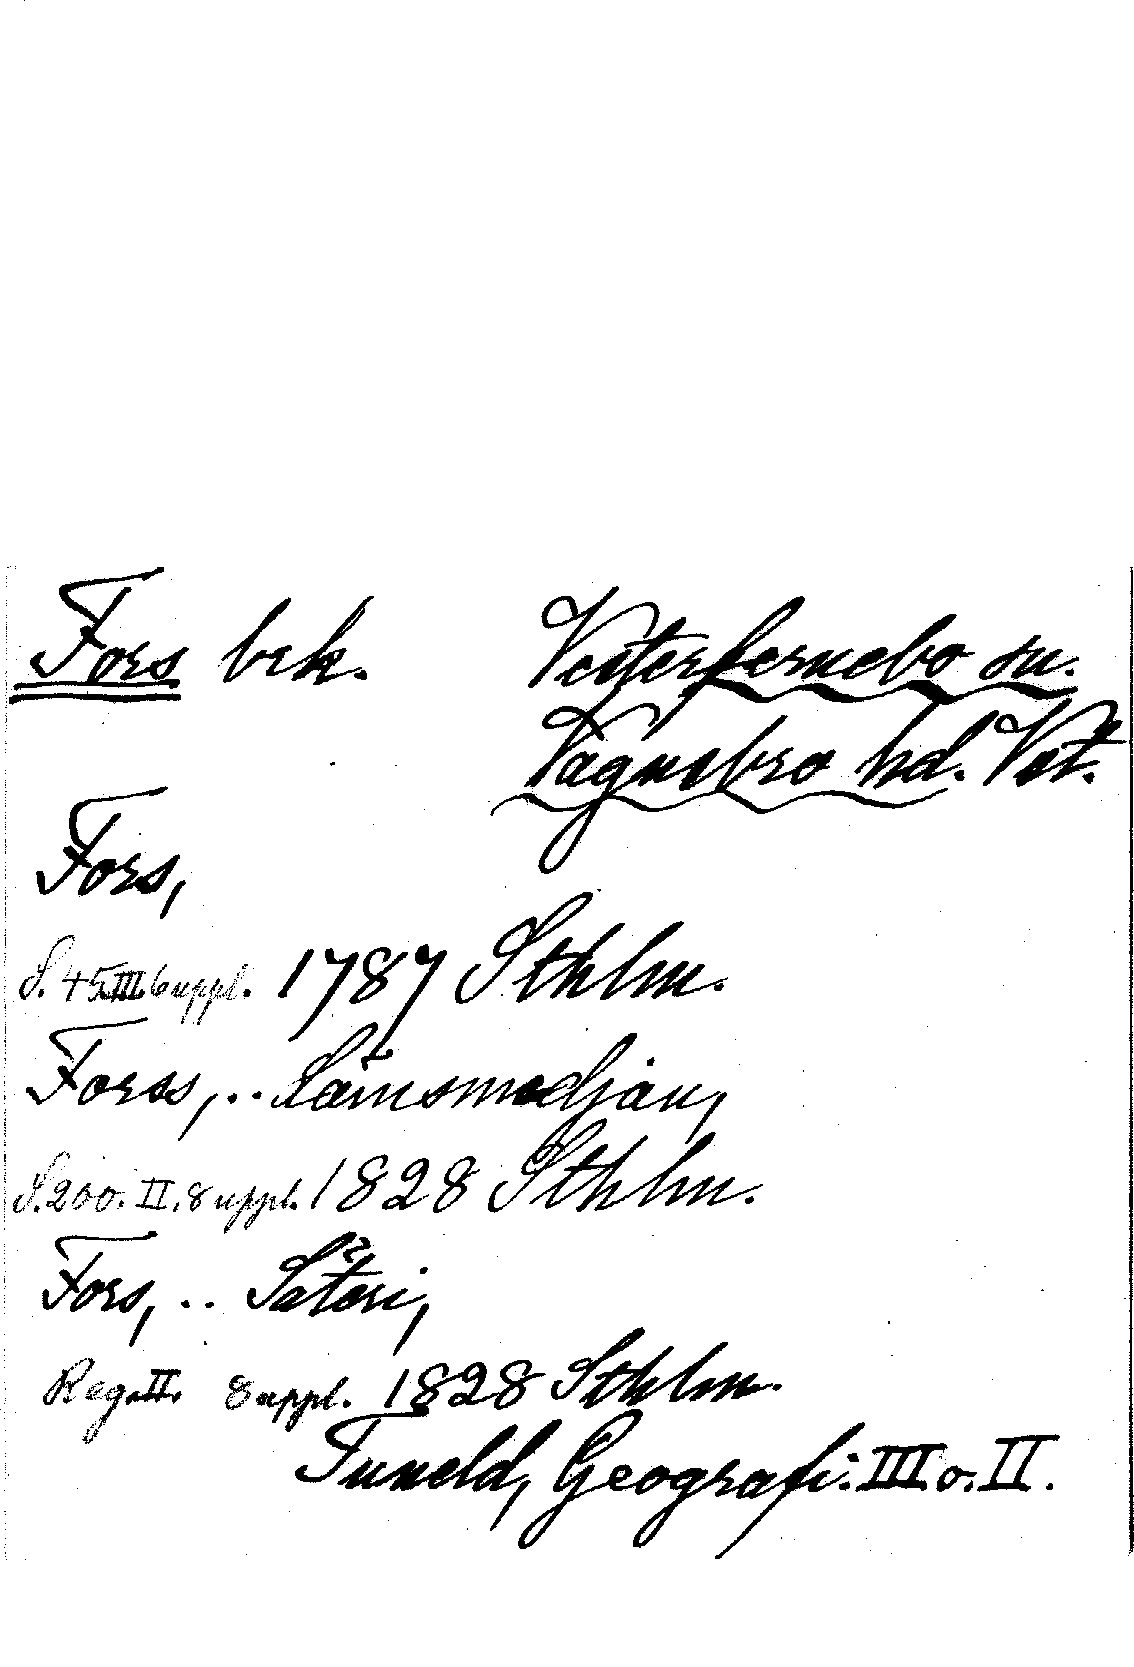 Fors bek. Vesterfernebo sn.
Vagnsbro hd. Vst.
Fors,
S. 45 III. 6 uppl. 1787 Sthlm.
Forss, .. Länsmedjan,
S. 200. II. 8 uppl. 1828 Sthlm.
Fors, .. Säteri,
Reg. II. 8 uppl. 1828 Sthlm.
Tuneld, Geografi. III o. II.